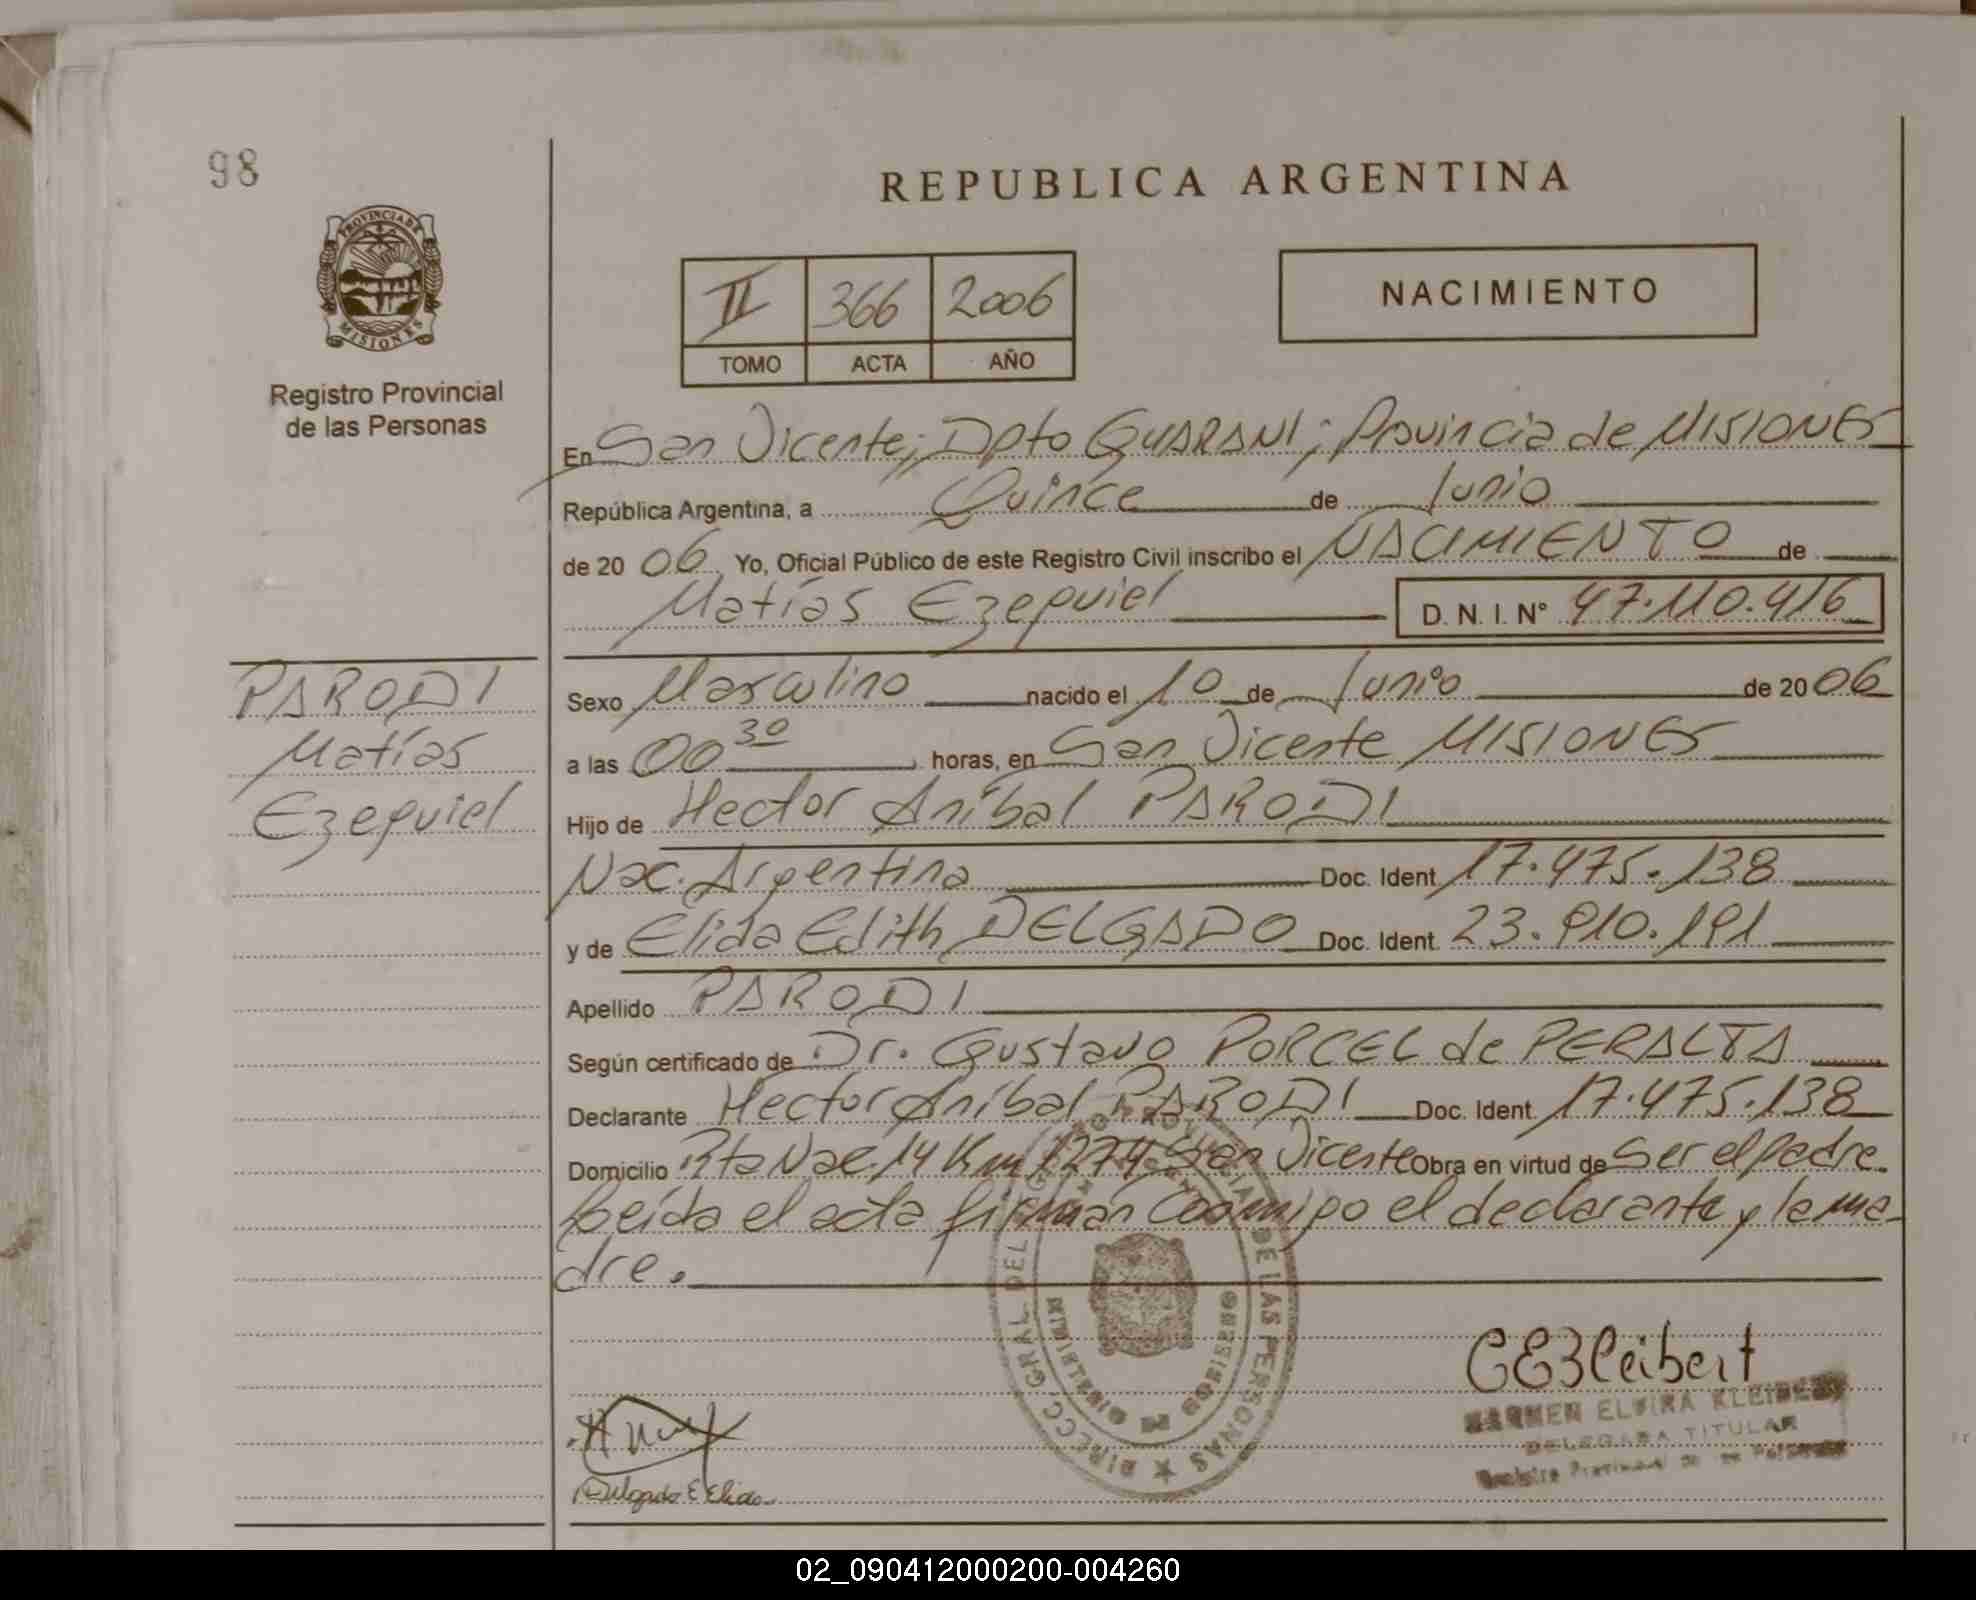 98
REPUBLICA ARGENTINA
PROVINCIA DE
MISIONES
Registro Provincial
de las Personas
II 366 2006
TOMO ACTA AÑO
NACIMIENTO
En San Vicente; Dpto GUARANI; Provincia de MISIONES
República Argentina, a Quince de Junio
de 20 06 Yo, Oficial Público de este Registro Civil inscribo el NACIMIENTO de
Matías Ezequiel D. N. I. N° 47.110.416
PARODI
Matías
Ezequiel
Sexo Masculino nacido el 10 de Junio de 20 06
a las 00 30 horas, en San Vicente MISIONES
Hijo de Hector Aníbal PARODI
Nac. Argentina Doc. Ident. 17.475.138
y de Elida Edith DELGADO Doc. Ident. 23.910.191
Apellido PARODI
Según certificado de Dr. Gustavo PORCEL de PERALTA
Declarante Hector Aníbal PARODI Doc. Ident. 17.475.138
Domicilio Rta Nac. 14 Km 1279 San Vicente Obra en virtud de Ser el padre.
Leída el acta firman conmigo el declarante y la ma-
dre.
DIRECC. GRAL. DEL REGISTRO PROVINCIAL DE LAS PERSONAS
CEKleibert
CARMEN ELVIRA KLEIBERT
DELEGADA TITULAR
Registro Provincial de las Personas
Delgado E Elida
02_090412000200-004260